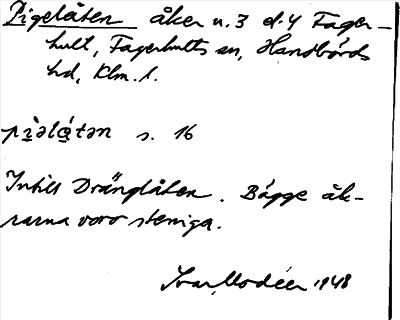 Pigelåten åker n. 3 el. 4 Fager-
hult, Fagerhults sn, Handbörds
hd, Klm. l.
s. 16
Intill Dränglåten. Bägge åk-
rarna voro steniga.
Ivar Modéer 1948